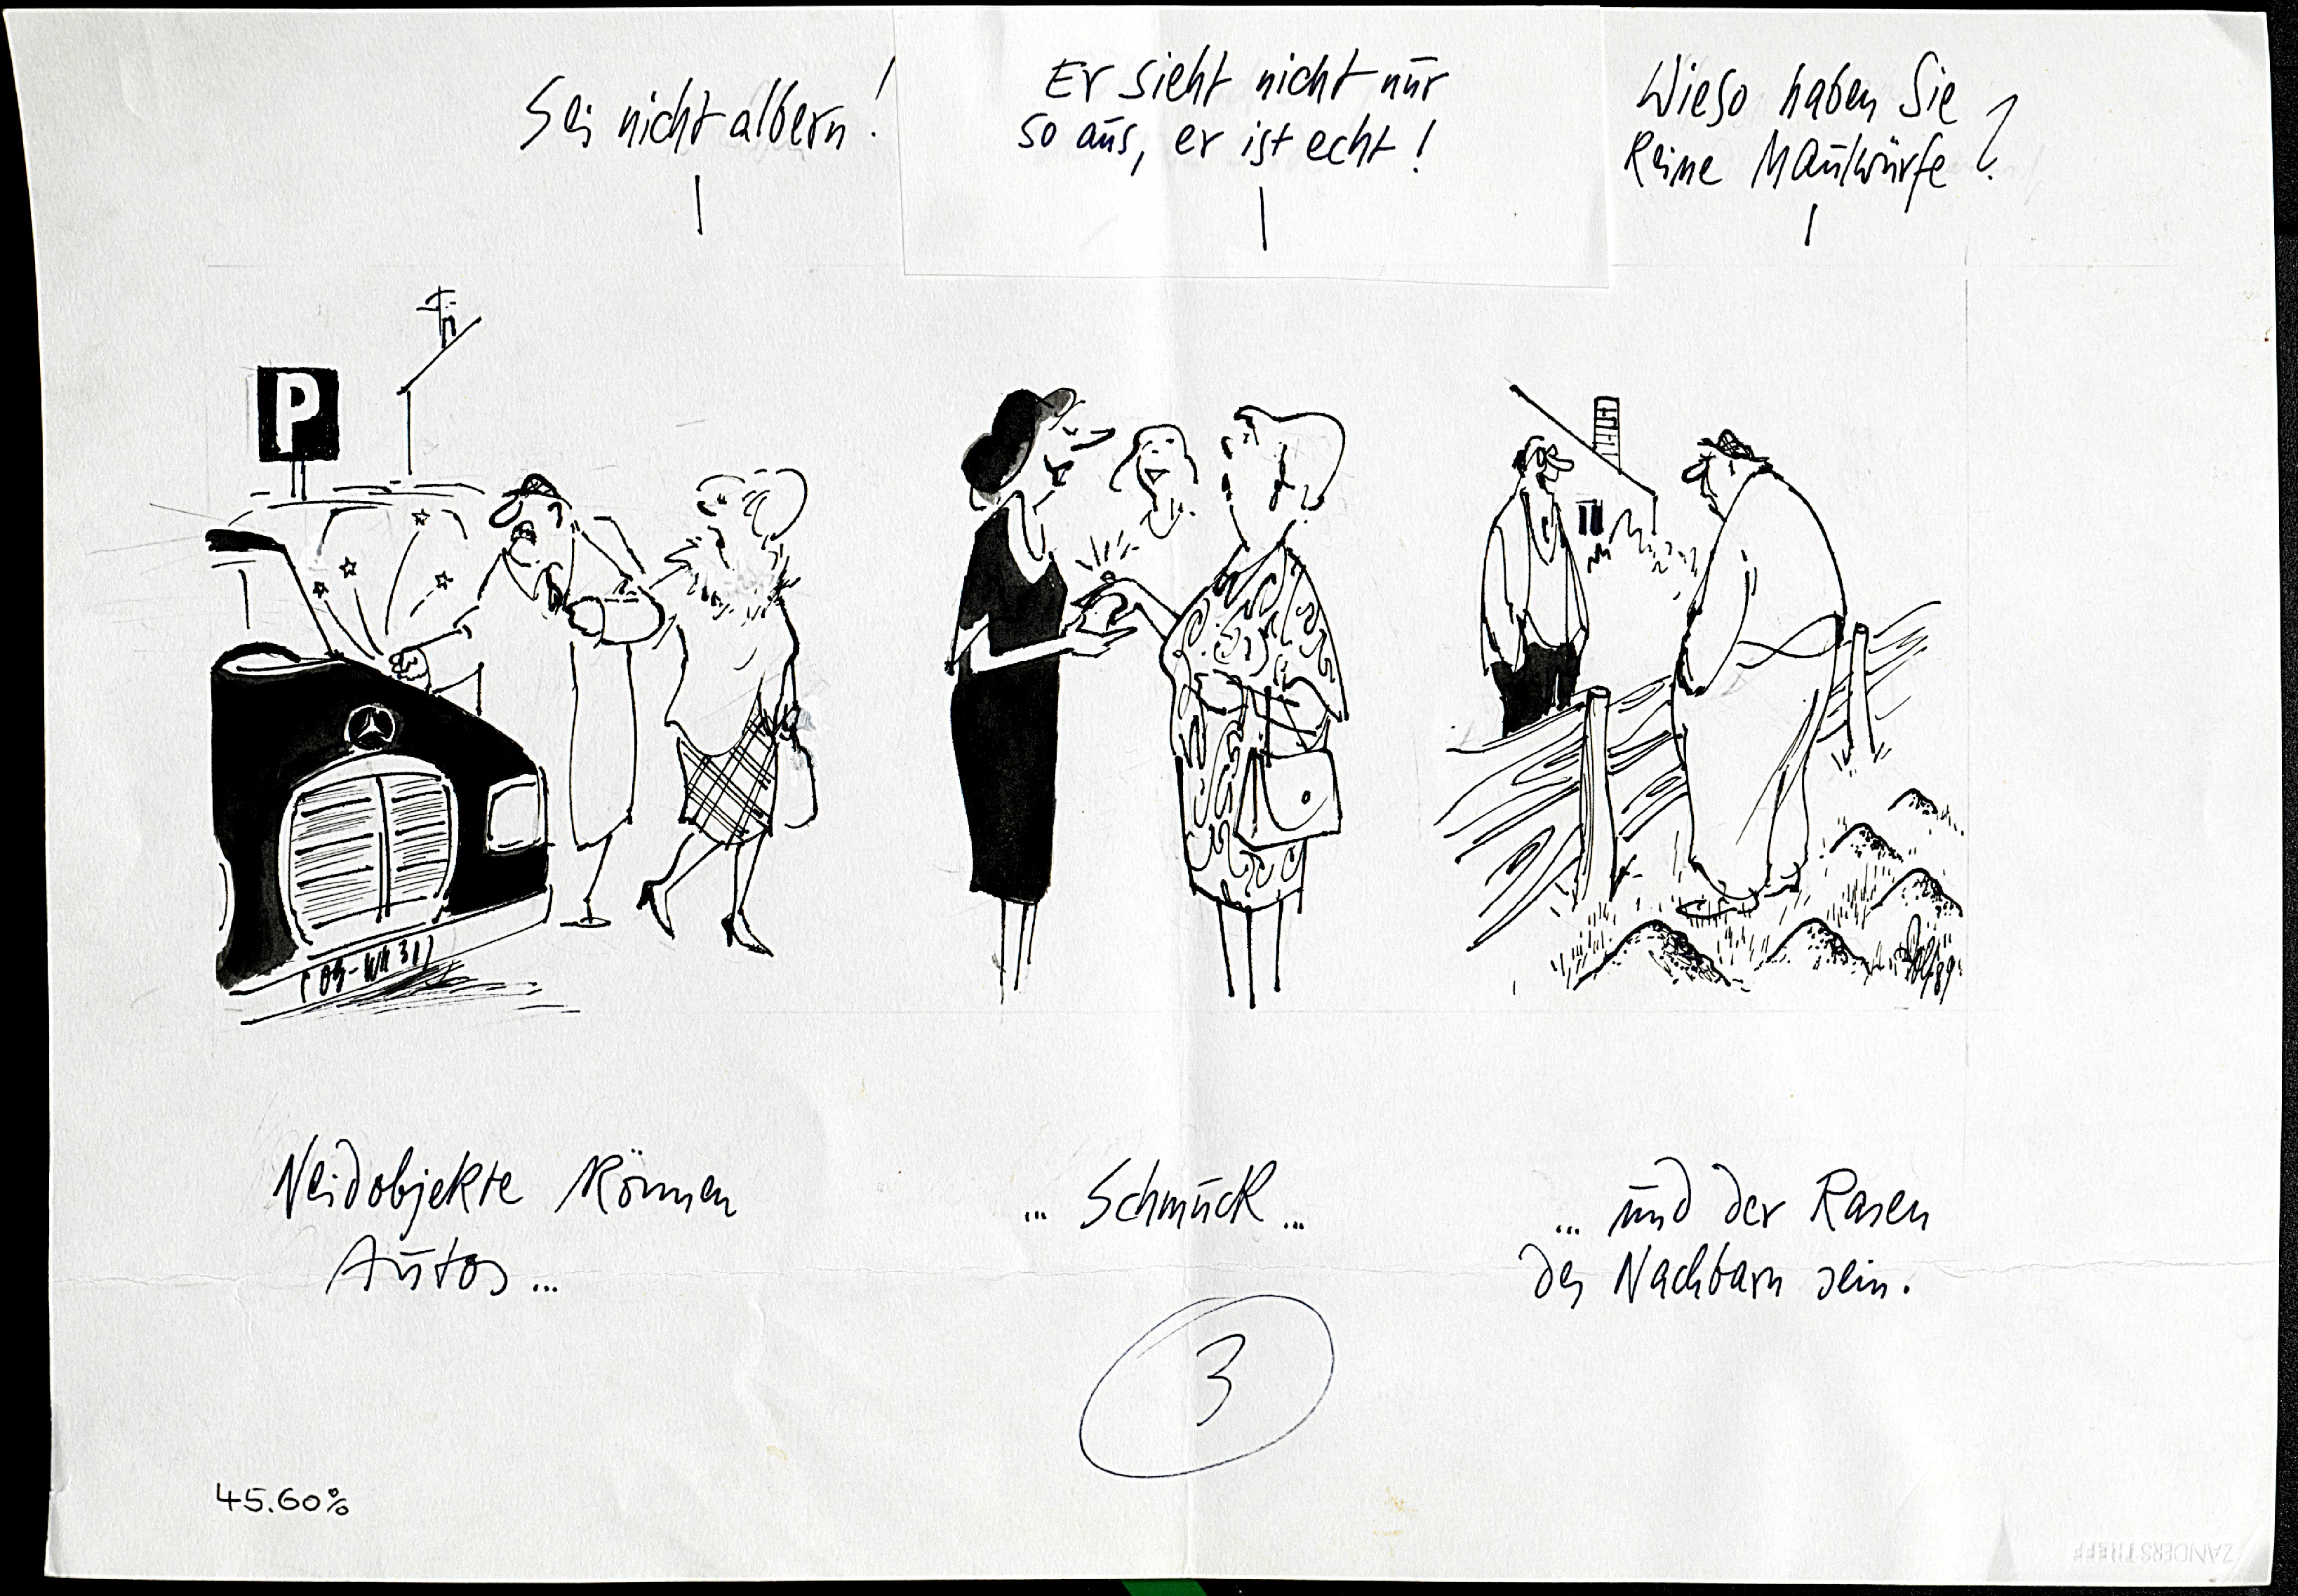 Sei nicht albern!
Er sieht nicht nur
so aus, er ist echt!
Wieso haben Sie
keine Maulwürfe?
P
Neidobjekte können
Autos...
... Schmuck...
... und der Rasen
des Nachbarn sein.
3
45.60%
ZANDERS TREFF